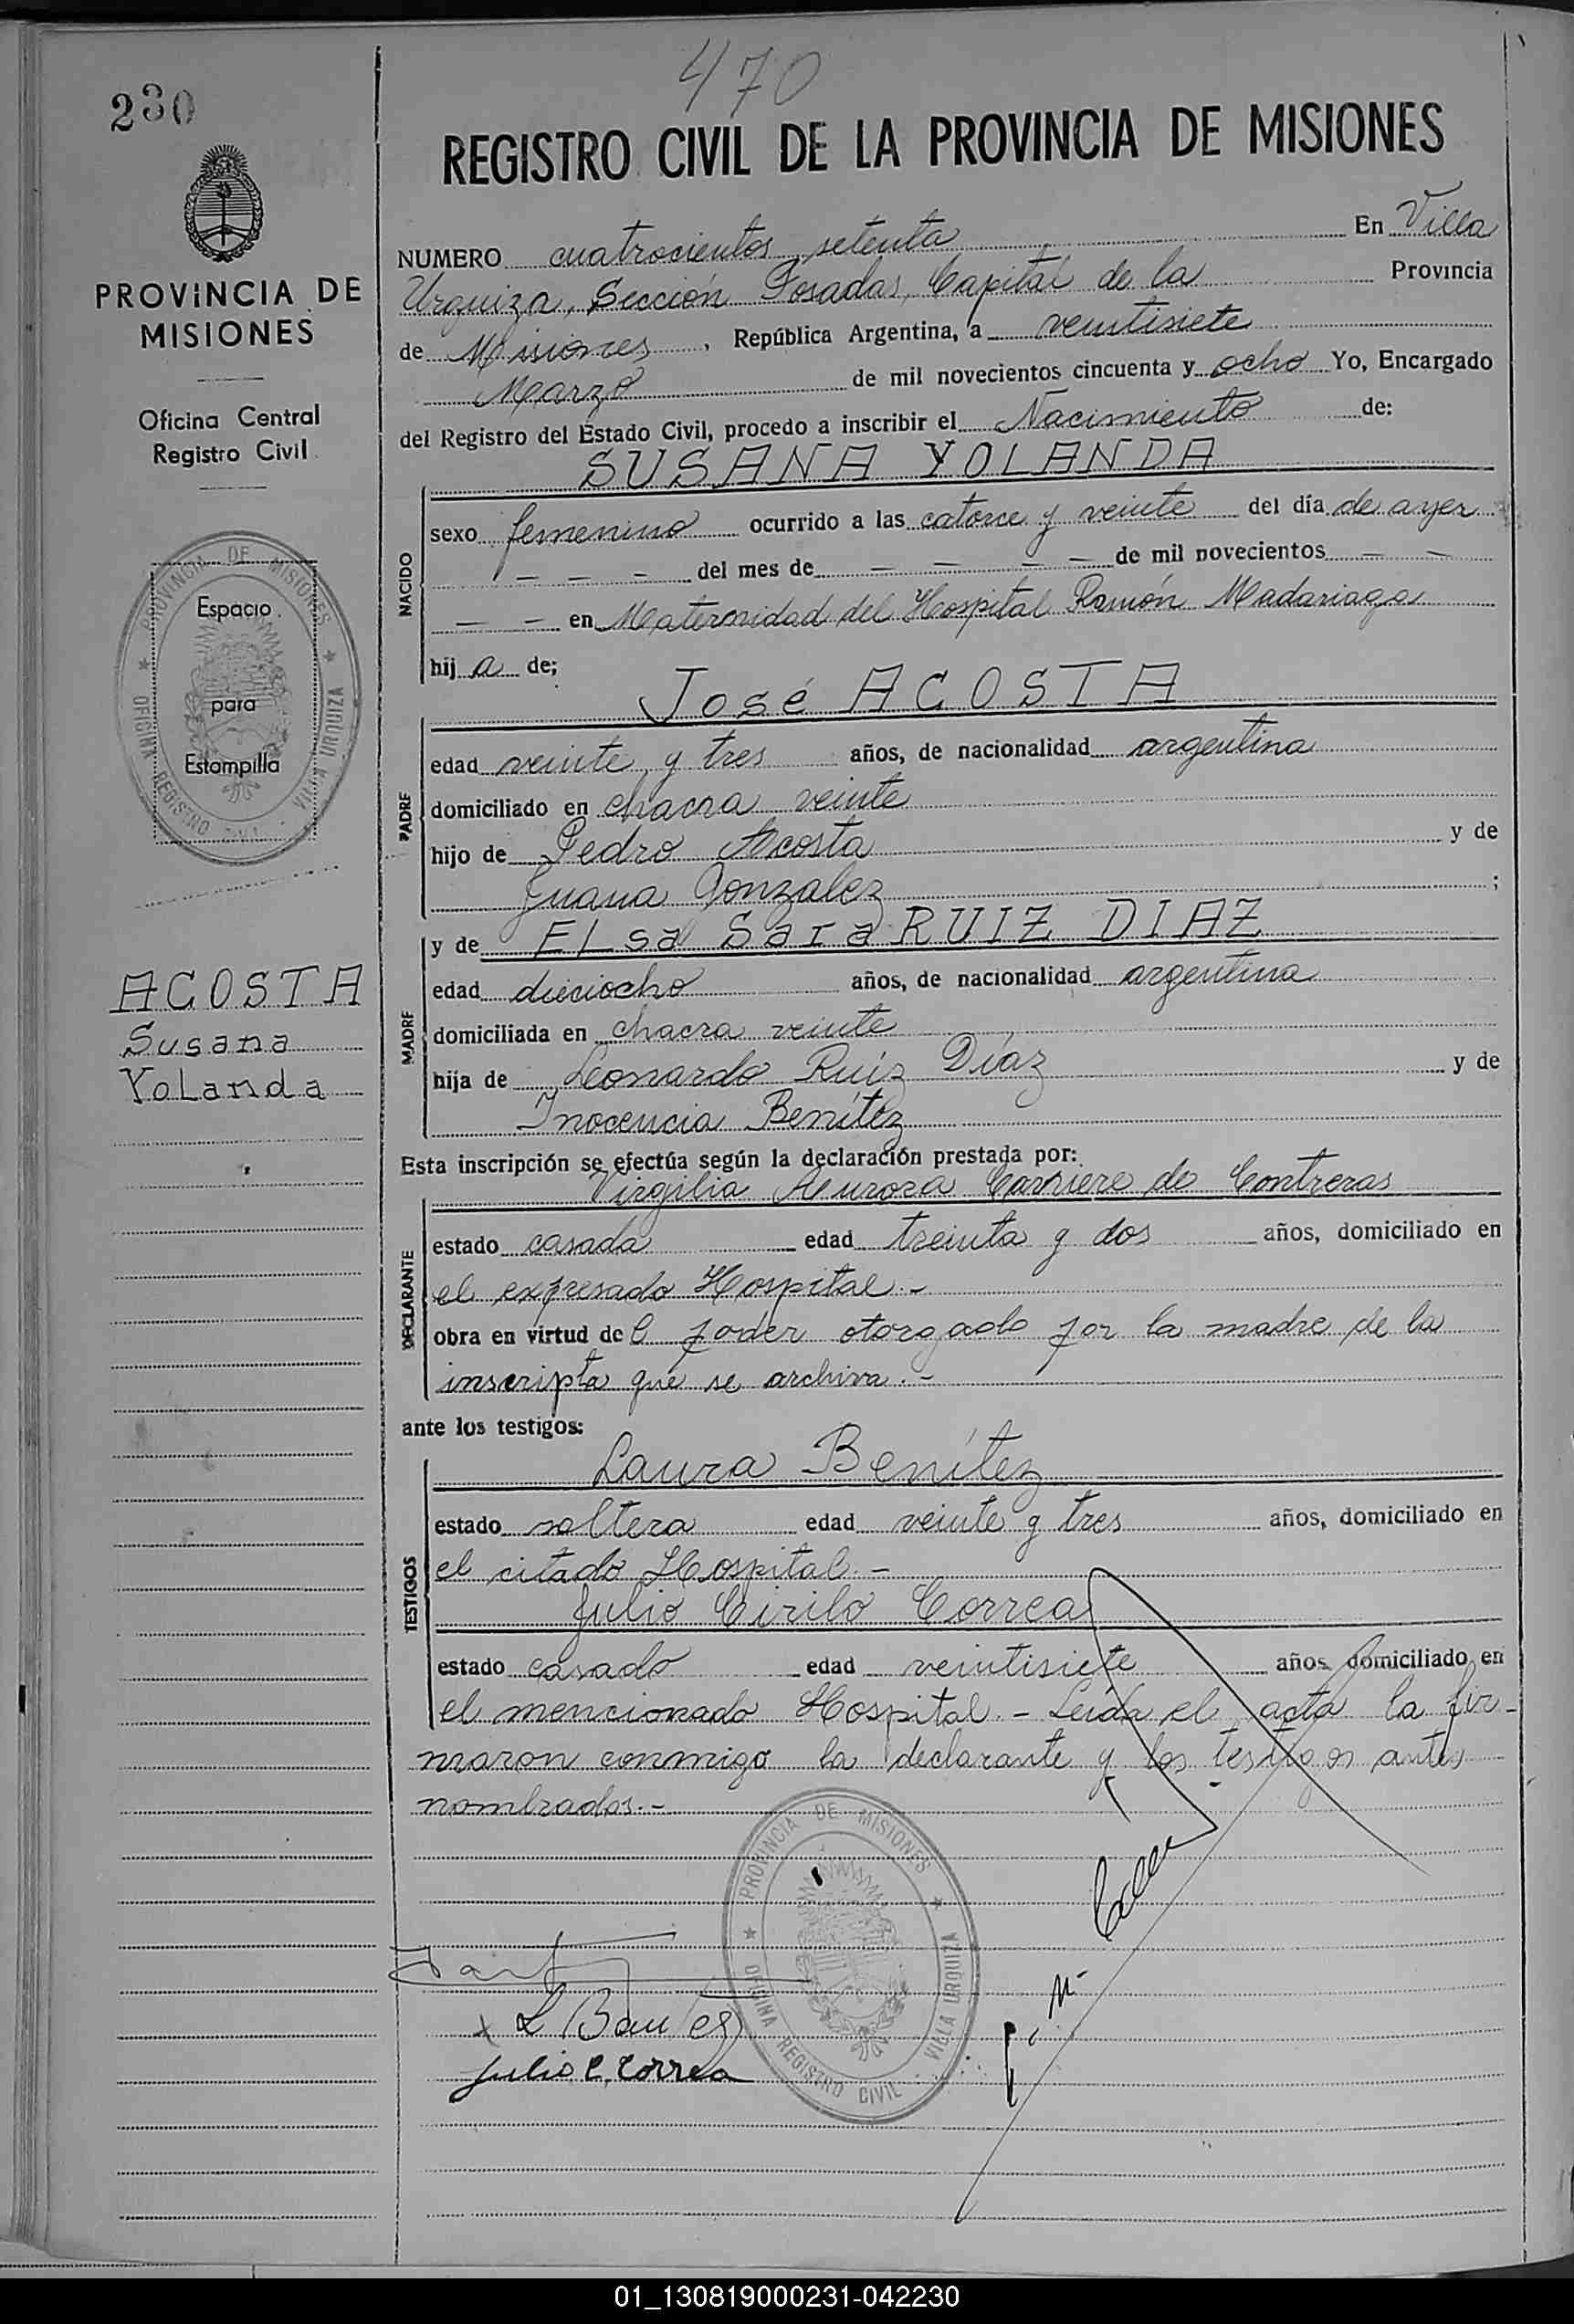 230
470
REGISTRO CIVIL DE LA PROVINCIA DE MISIONES
PROVINCIA DE
MISIONES
Oficina Central
Registro Civil
Espacio
para
Estampilla
PROVINCIA DE MISIONES
OFICINA REGISTRO CIVIL - VILLA URQUIZA
ACOSTA
Susana
Yolanda
NUMERO cuatrocientos setenta En Villa
Urquiza, Sección Posadas, Capital de la Provincia
de Misiones, República Argentina, a veintisiete
Marzo de mil novecientos cincuenta y ocho Yo, Encargado
del Registro del Estado Civil, procedo a inscribir el Nacimiento de:
SUSANA YOLANDA
NACIDO
sexo femenino ocurrido a las catorce y veinte del día de ayer
— — — del mes de — — — — de mil novecientos — —
— — en Maternidad del Hospital Ramón Madariaga
hij a de;
José ACOSTA
PADRE
edad veinte y tres años, de nacionalidad argentina
domiciliado en chacra veinte
hijo de Pedro Acosta y de
Juana Gonzalez ;
y de Elsa Sara RUIZ DIAZ
MADRE
edad dieciocho años, de nacionalidad argentina
domiciliada en chacra veinte
hija de Leonardo Ruiz Díaz y de
Inocencia Benítez
Esta inscripción se efectúa según la declaración prestada por:
Virgilia Aurora Carriere de Contreras
DECLARANTE
estado casada edad treinta y dos años, domiciliado en
el expresado Hospital.-
obra en virtud del poder otorgado por la madre de la
inscripta que se archiva.-
ante los testigos:
Laura Benítez
TESTIGOS
estado soltera edad veinte y tres años, domiciliado en
el citado Hospital.-
Julio Cirilo Correa
estado casado edad veintisiete años domiciliado en
el mencionado Hospital.- Leída el acta la fir-
maron conmigo la declarante y los testigos antes
nombrados.-
PROVINCIA DE MISIONES
OFICINA REGISTRO CIVIL - VILLA URQUIZA
Julio C. Correa
01_130819000231-042230